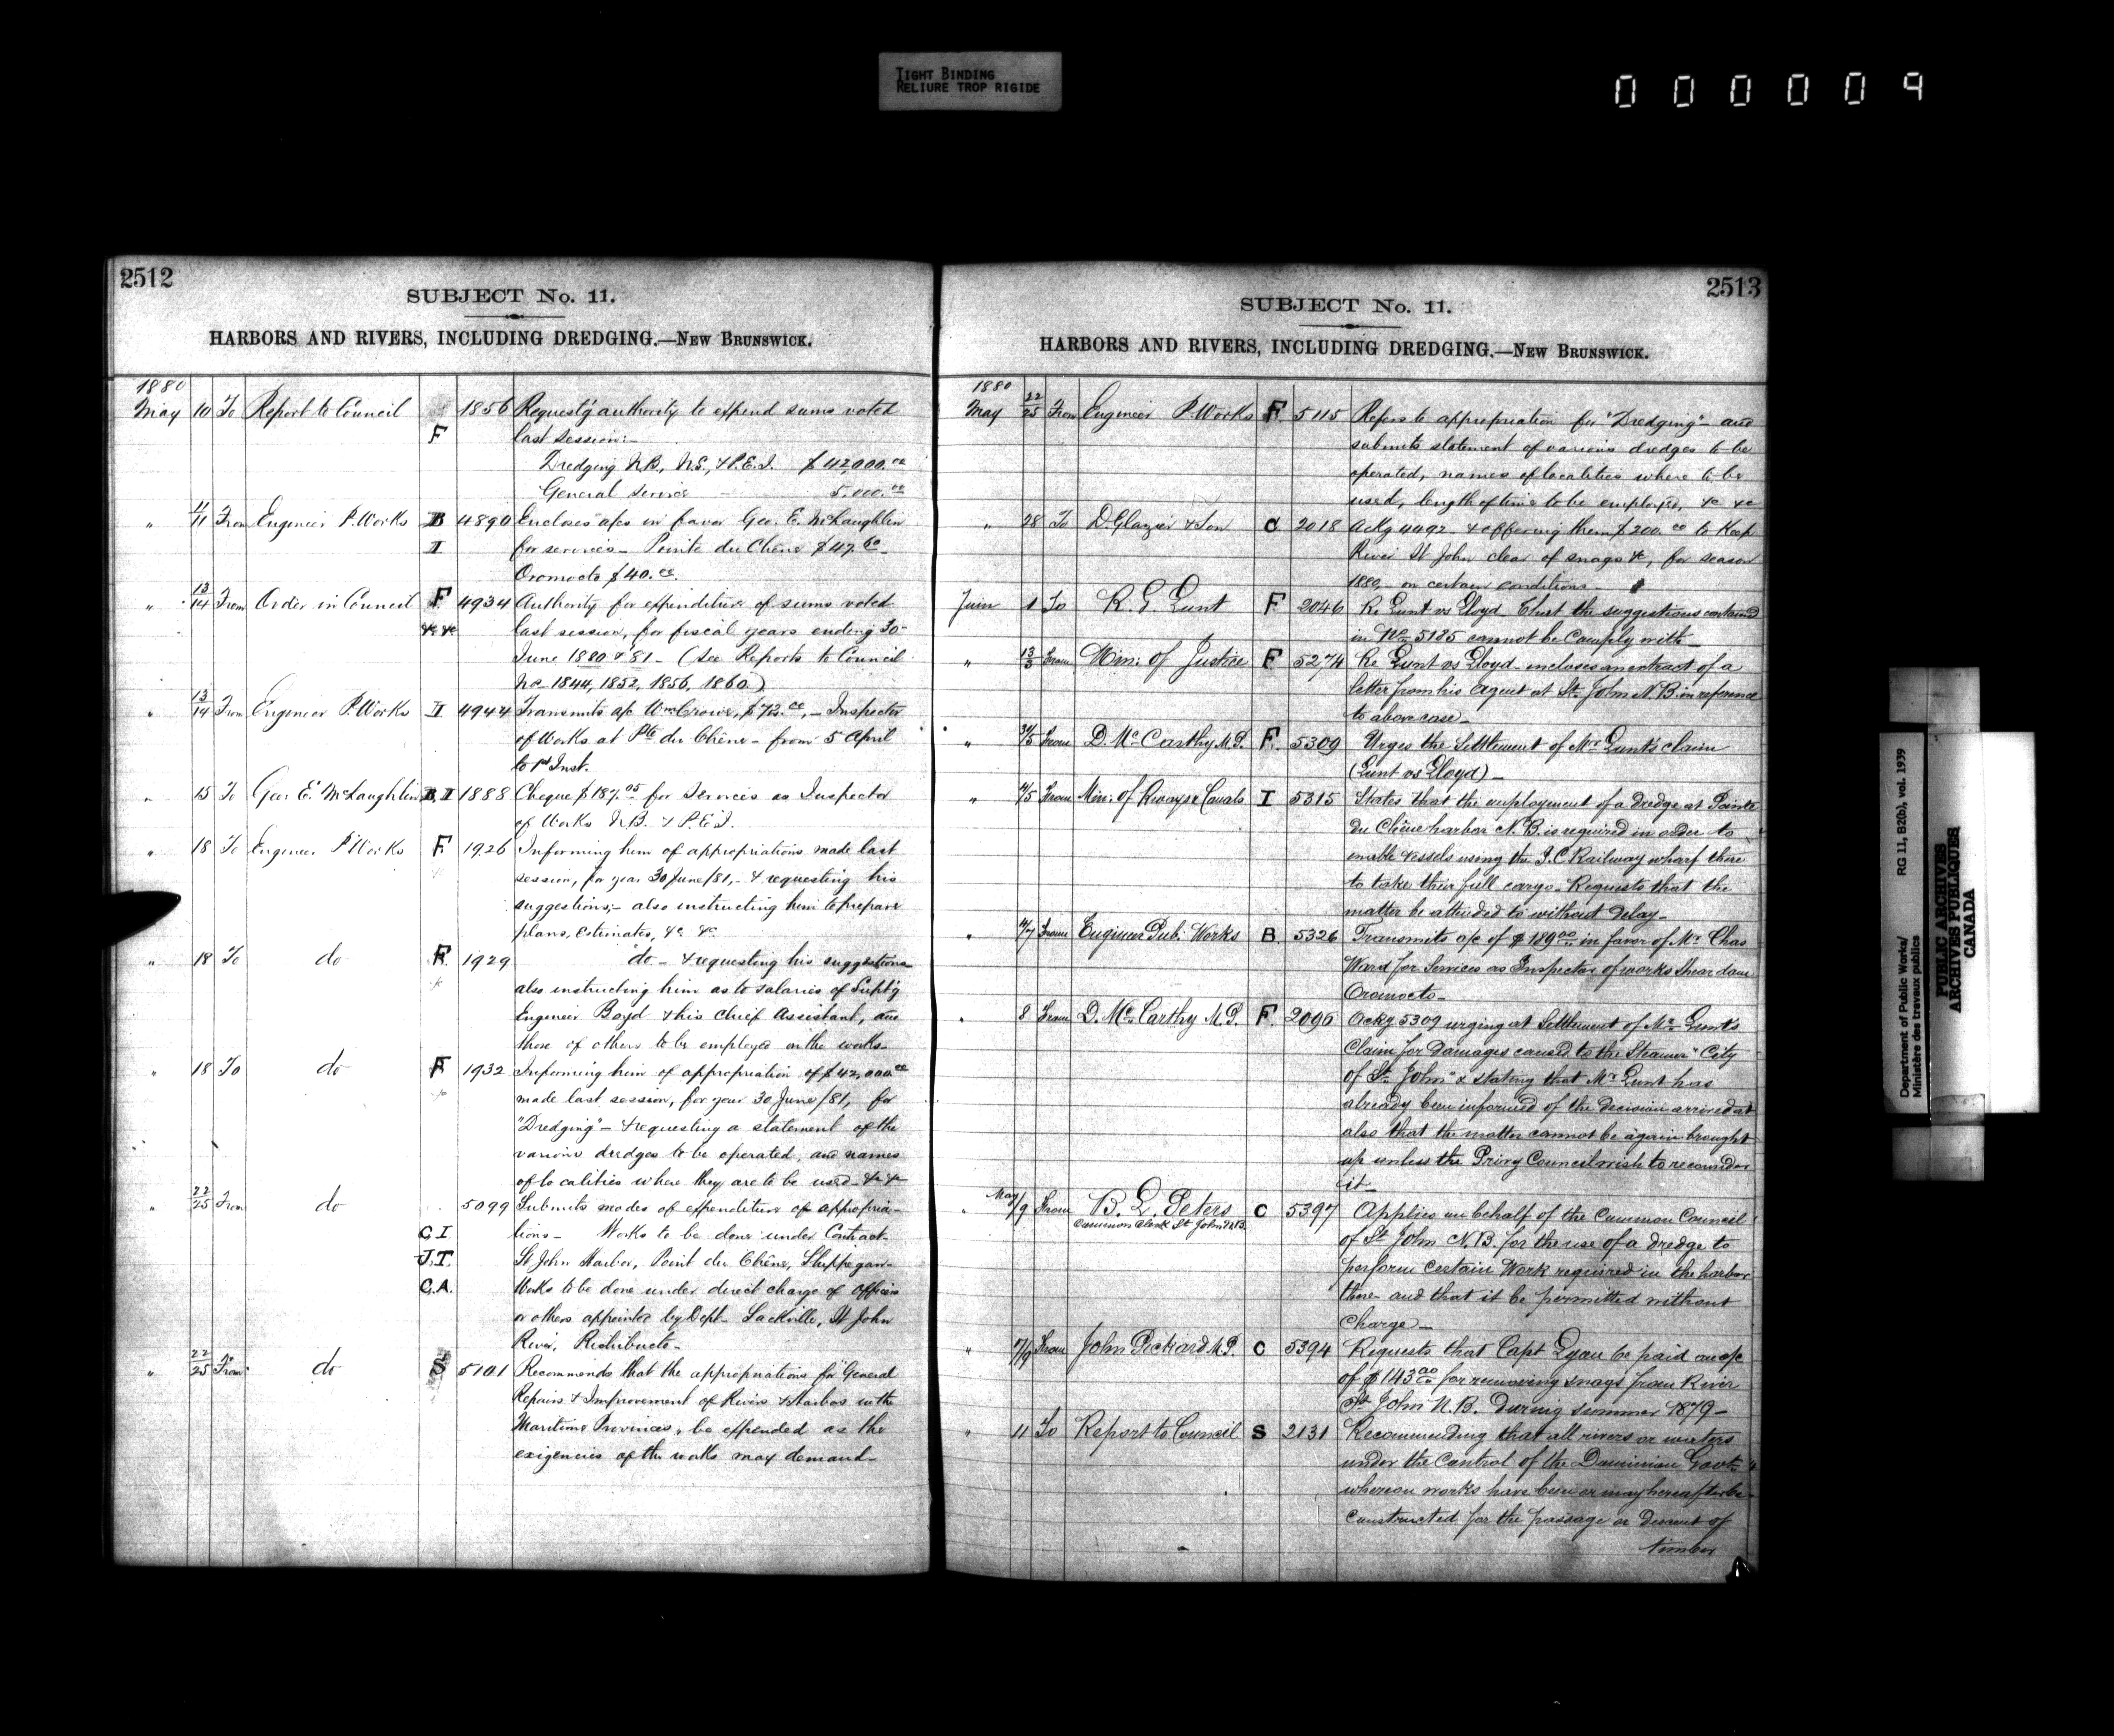 TIGHT BINDING
RELIURE TROP RIGIDE
000009
2512
SUBJECT No. 11.
HARBORS AND RIVERS, INCLUDING DREDGING.—NEW BRUNSWICK.
1880
May 10 To Report to Council 1856 Request'g authority to expend sums voted
F last session:—
Dredging N.B., N.S., & P.E.I. $42,000.00
General service — 5.000.00
" 11 From Engineer P. Works B 4890 Encloses a/cs in favor Geo. E. McLaughlin
I for services — Pointe du Chêne $47.60
Oromocto $40.00.
" 13/14 From Order in Council F 4934 Authority for expenditure of sums voted
&c &c last session, for fiscal years ending 30
June 1880 & 81 — (See Reports to Council
No 1844, 1852, 1856, 1860.)
" 13/14 From Engineer P. Works I 4944 Transmits a/c Wm Crowe, $72.00, — Inspector
of Works at Pte du Chêne — from 5 April
to 1st Inst.
" 15 To Geo. E. McLaughlin B, I 1888 Cheque $187.05 for Services as Inspector
of Works N.B. & P.E.I.
" 18 To Engineer P. Works F 1926 Informing him of appropriations made last
session, for year 30 June/81, — & requesting his
suggestions; — also instructing him to prepare
plans, estimates, &c &c
" 18 To do F. 1929 do — & requesting his suggestions
also instructing him as to salaries of Supt'g
Engineer Boyd & his Chief Assistant, and
those of others to be employed on the works.
" 18 To do F 1932 Informing him of appropriation of $42,000.00
made last session, for year 30 June/81, for
"Dredging" — & requesting a statement of the
various dredges to be operated, and names
of localities where they are to be used — &c &c
" 22/25 From do 5099 Submits modes of expenditure of appropria-
C I tions — Works to be done under Contract —
J.T. St John Harbor, Point du Chêne, Shippegan —
C.A. Works to be done under direct charge of Officers
or others appointed by Dept — Sackville, St John
River, Richibucto —
" 22/25 From do S 5101 Recommends that the appropriations for General
Repairs & Improvement of Rivers & Harbors in the
Maritime Provinces, be expended as the
exigencies of the works may demand —
2513
SUBJECT No. 11.
HARBORS AND RIVERS, INCLUDING DREDGING.—NEW BRUNSWICK.
1880
May 22/25 From Engineer P. Works F. 5115 Refers to appropriation for "Dredging" — and
submits statement of various dredges to be
operated, names of localities where to be
used, length of time to be employed, &c &c
" 28 To D. Glazier & Son C 2018 Ackg 4492 & offering them $200.00 to keep
River St John clear of snags &c, for season
1880, — on certain conditions
June 1 To R. G. Lunt F 2046 Re Lunt vs Lloyd that the suggestions contained
in No 5185 cannot be Comply with —
" From Min: of Justice F 5274 Re Lunt vs Lloyd — encloses an extract of a
letter from his Agent at St. John N.B. in reference
to above case —
" 31/5 From D. McCarthy M.P. F. 5309 Urges the Settlement of Mr Lunt's claim
(Lunt vs Lloyd) —
" 4/5 From Min: of Rways & Canals I 5315 States that the employment of a dredge at Pointe
Du Chêne harbor N.B. is required in order to
enable vessels using the I.C. Railway wharf there
to take their full cargo — Requests that the
matter be attended to without delay —
" 4/7 From Engineer Pub: Works B 5326 Transmits a/c of $189.00 in favor of Mr Chas
Ward for Services as Inspector of works Shear dam
Oromocto —
" 8 From D. McCarthy M.P. F. 2096 Ackg 5309 urging at Settlement of Mr Lunt's
Claim for Damages caused to the Steamer "City
of St. John" & stating that Mr Lunt has
already been informed of the decision arrived at
also that the matter cannot be again brought
up unless the Privy Council wish to reconsider
it —
" May /9 From B. L. Peters C 5397 Applies on behalf of the Common Council
Common Clerk St John N.B. of St John N.B. for the use of a dredge to
perform certain Work required in the harbor
there and that it be permitted without
Charge —
" 7/9 From John Pickard M.P. C 5394 Requests that Capt be paid an a/c
of $143.00 for removing snags from River
St. John N.B. During summer 1879 —
" 11 To Report to Council S 2131 Recommending that all rivers or waters
under the Control of the Dominion Govt
whereon works have been or may hereafter be
constructed for the passage or Descent of
timber
Department of Public Works/ RG 11, B2(b), vol. 1939
Ministère des travaux publics
PUBLIC ARCHIVES
ARCHIVES PUBLIQUES
CANADA